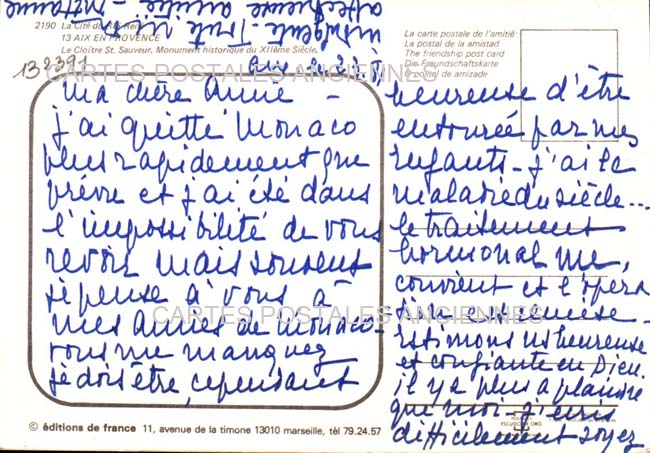 2190 La Cité du Roi René
13 AIX EN PROVENCE
Le Cloître St. Sauveur. Monument historique du XIIème Siècle.
La carte postale de l'amitié
La postal de la amistad
The friendship post card
Die Freundschaftskarte
O postal de amizade
132391
CARTES POSTALES ANCIENNES
Ma chère Annie –
j'ai quitté Monaco
plus rapidement que
prévu et j'ai été dans
l'impossibilité de vous
revoir mais souvent
je pense à vous à
mes Amies de Monaco –
vous me manquez
je dois être, cependant
heureuse d'être
entourée par mes
enfants – j'ai la
maladie du siècle...
le traitement
hormonal me
convient et l'opéra
tion est remise –
estimons us heureuse
et confiante en Dieu.
il y a plus à plaindre
que moi – j'écris
difficilement soyez
indulgente Toute
affectueuse amitié –
CARTES POSTALES ANCIENNES
ESCUDO DE ORO
© éditions de france 11, avenue de la timone 13010 marseille, tèl 79.24.57